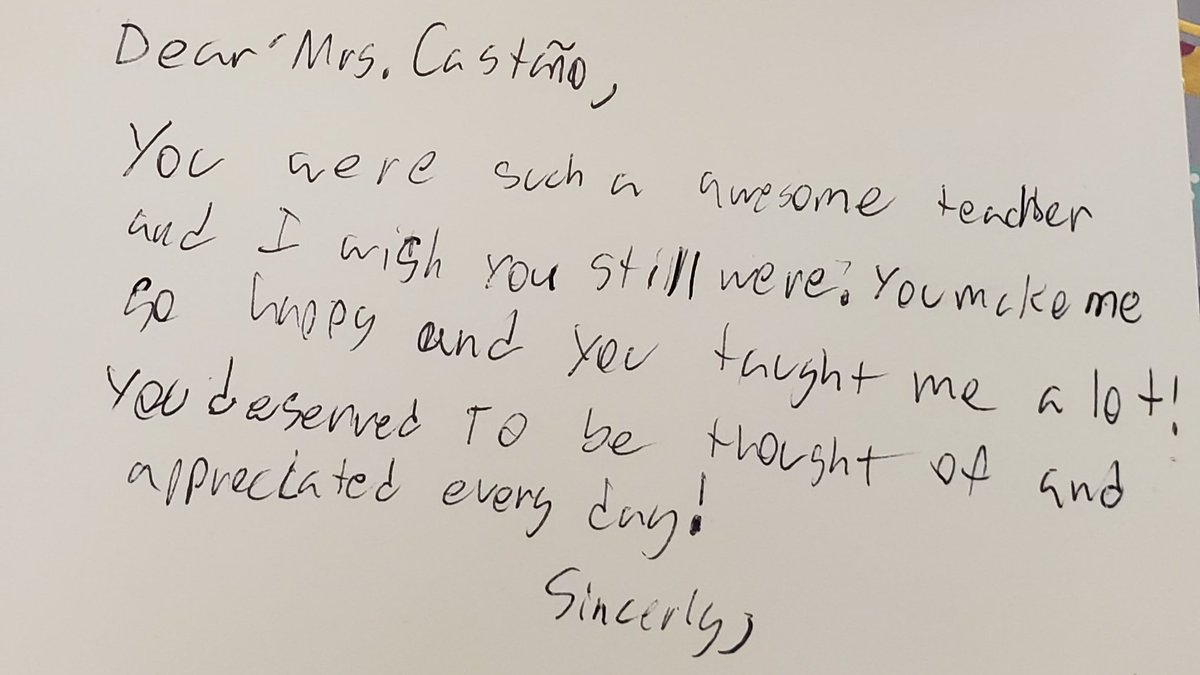 Dear Mrs. Castaño,
You were such a awesome teacher
and I wish you still were. You make me
so happy and you taught me a lot!
You deserved To be thought of and
appreciated every day!
Sincerly,